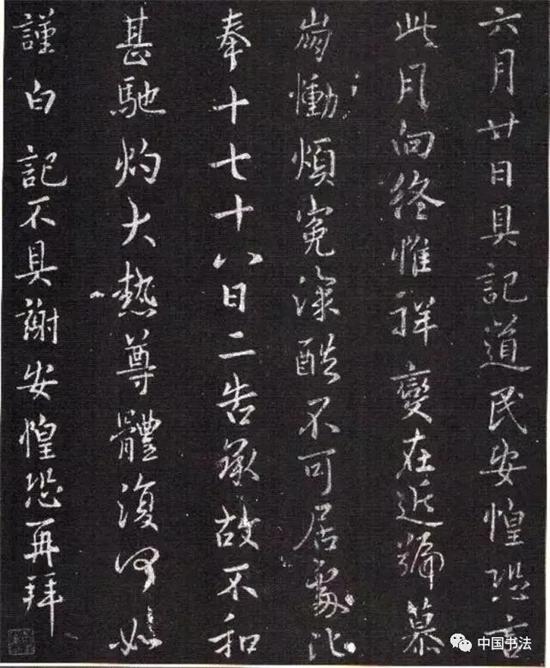 六月廿日具記道民安惶恐言
此月向終惟祥變在近號慕
崩慟煩冤深酷不可居處比
奉十七十八日二告承故不和
甚馳灼大熱尊體復何如
謹白記不具謝安惶恐再拜
中国书法